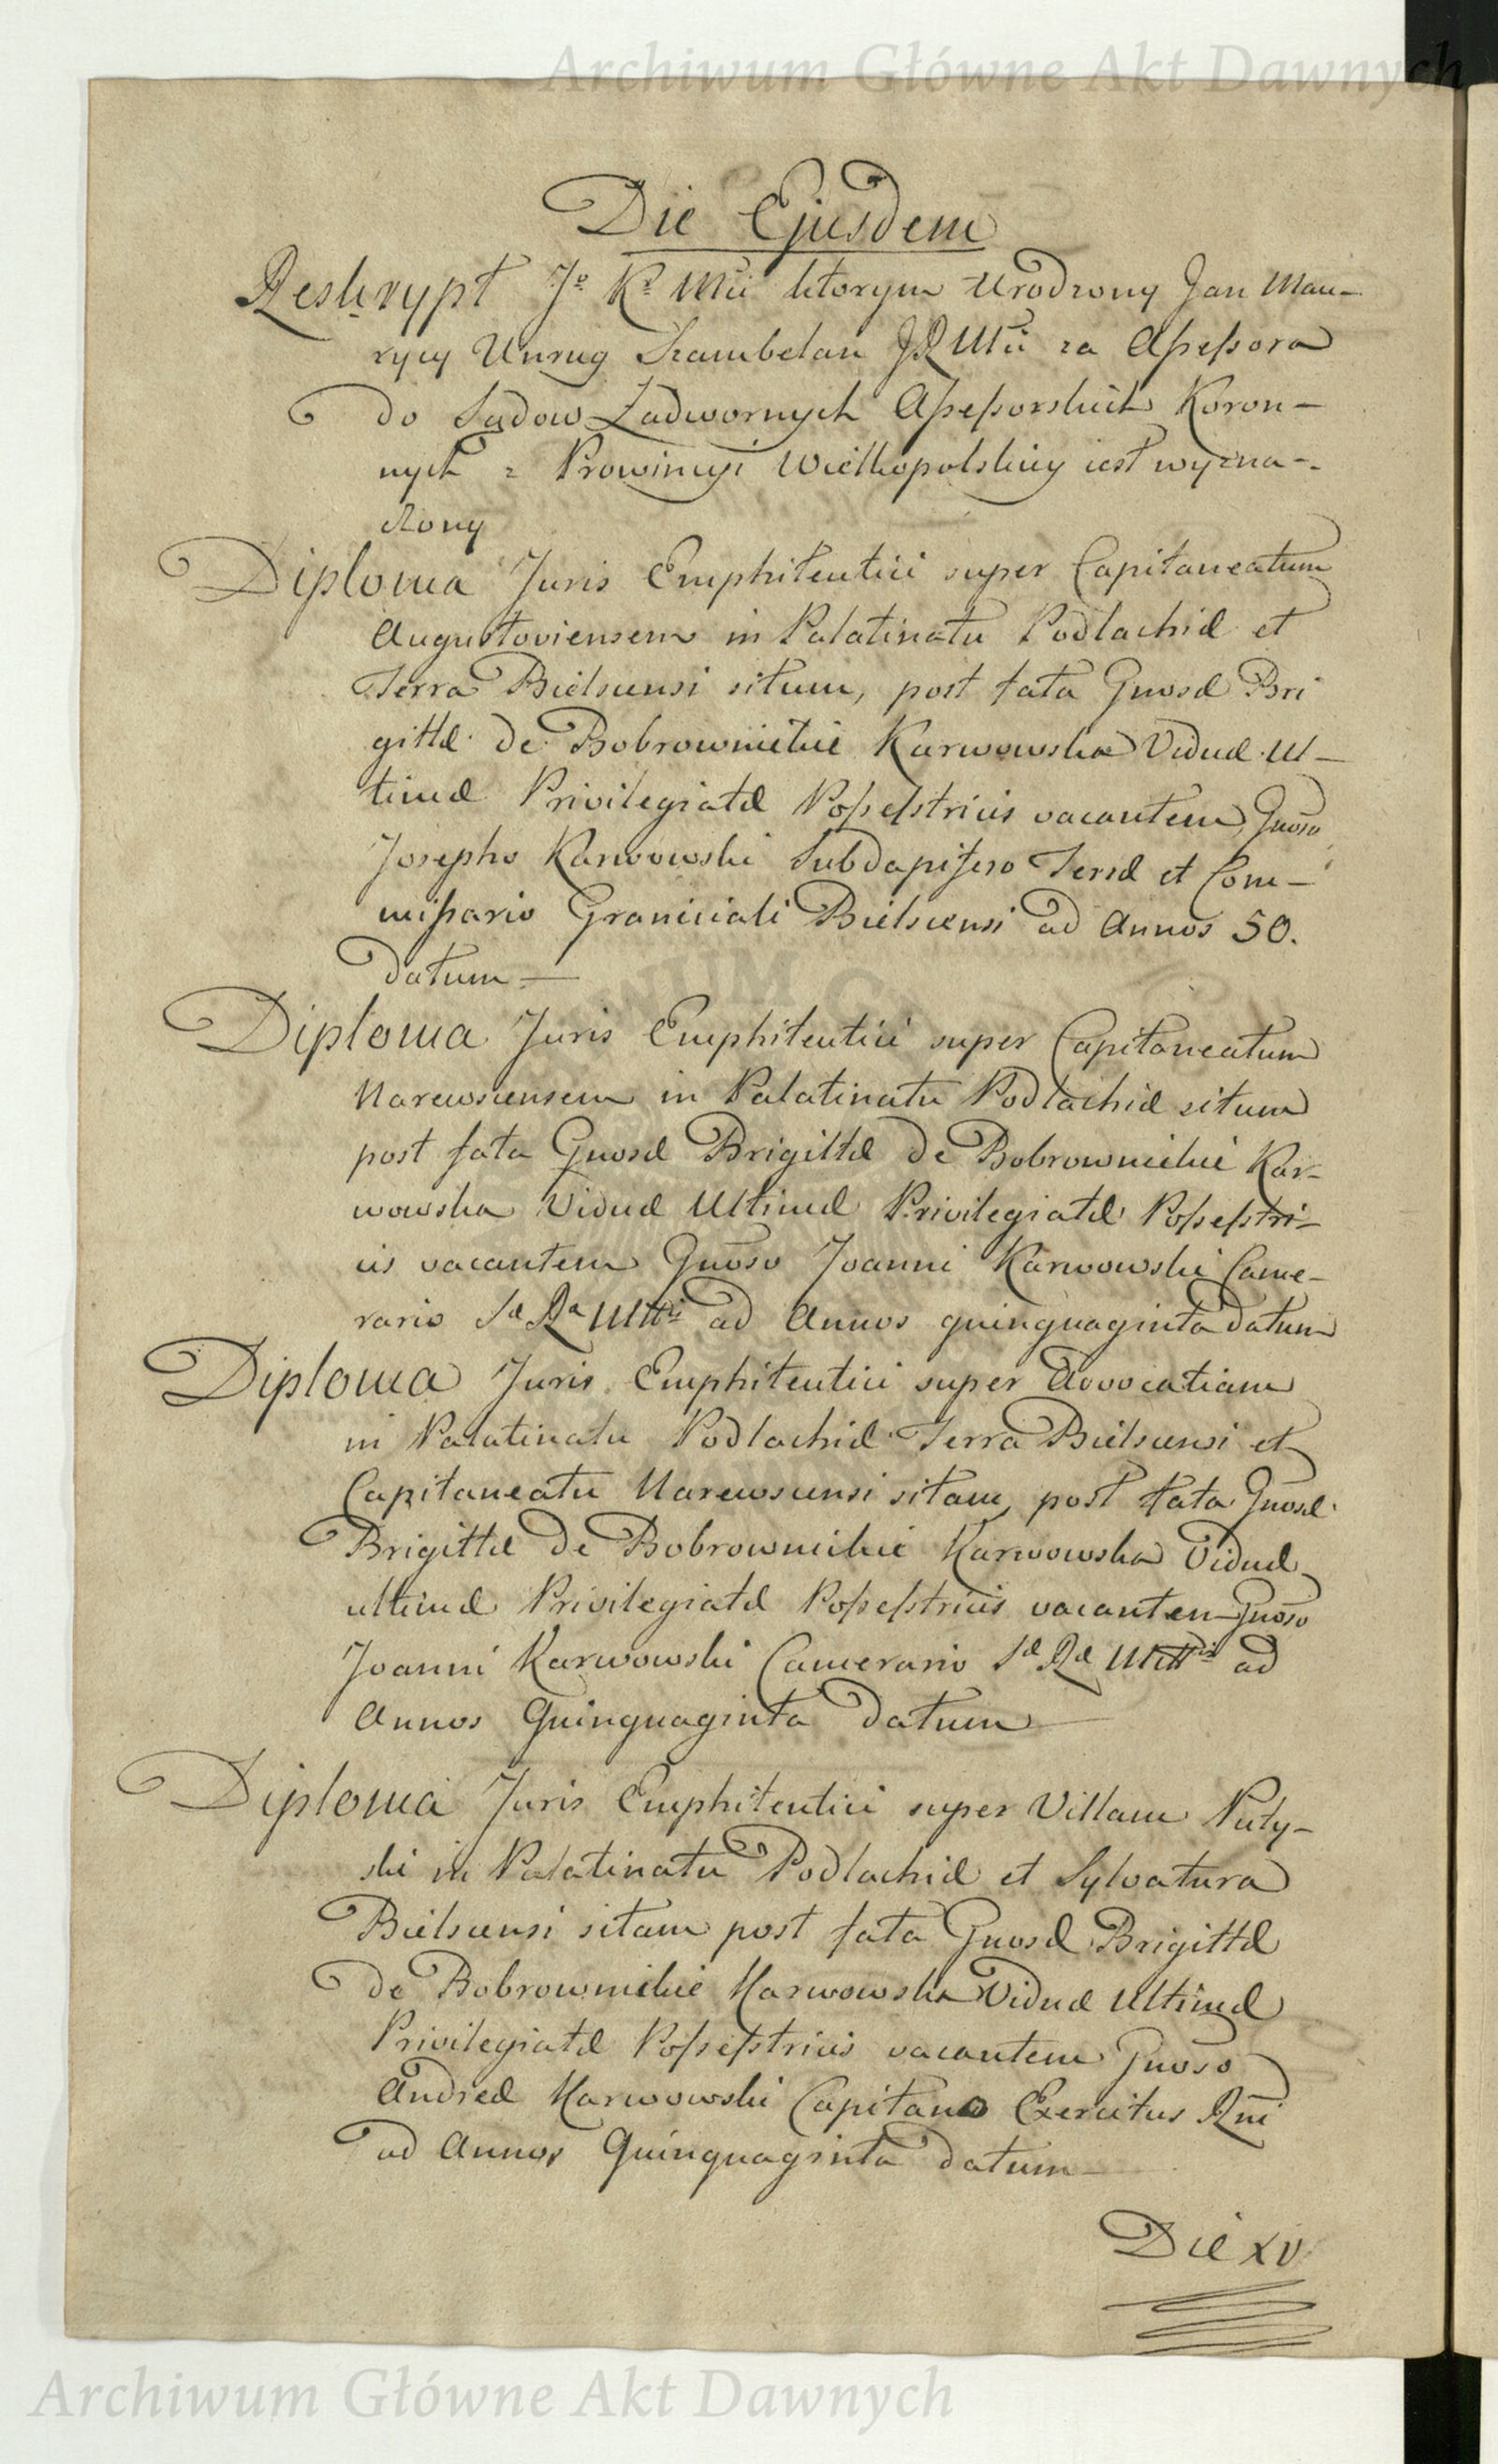 Archiwum Główne Akt Dawnych
Die Ejusdem
Reskrypt Jº Kr Mći ktorym Urodzony Jan Mau-
rycy Unrug Szambelan JKMći za Assessora
do Sądow Zadwornych Assessorskich Koron-
nych z Prowincyi Wielkopolskiey iest wyzna-
czony
Diploma Juris Emphiteutici super Capitaneatum
Augustoviensem in Palatinatu Podlachiæ et
Terra Bielscensi situm, post fata Gnosæ Bri
gittæ de Bobrownickie Karwowska Viduæ Ul-
timæ Privilegiatæ Possesstricis vacantem Gnoso
Josepho Karwowski Subdapifero Terræ et Com-
missario Graniciali Bielscensi ad Annos 50.
datum —
Diploma Juris Emphiteutici super Capitaneatum
Narewscensem in Palatinatu Podlachiæ situm
post fata Gnosæ Brigittæ de Bobrownickie Kar-
wowska Viduæ Ultimæ Privilegiatæ Possesstri-
cis vacantem Gnoso Joanni Karwowski Came-
rario Sæ Rª Mttis ad Annos quinquaginta datum
Diploma Juris Emphiteutici super Advocatiam
in Palatinatu Podlachiæ Terra Bielscensi et
Capitaneatu Narewscensi sitam, post fata Gnosæ
Brigittæ de Bobrownickie Karwowska Viduæ
ultimæ Privilegiatæ Possesstricis vacantem Gnoso
Joanni Karwowski Camerario Sæ Ræ Mttis ad
Annos Quinquaginta datum —
Diploma Juris Emphiteutici super Villam Puty-
ski in Palatinatu Podlachiæ et Sylvatura
Bielscensi sitam post fata Gnosæ Brigittæ
de Bobrownickie Karwowska Viduæ Ultimæ
Privilegiatæ Possesstricis vacantem Gnoso
Andreæ Karwowski Capitano Exercitus Rni
ad Annos Quinquaginta datum —
Die XV
Archiwum Główne Akt Dawnych